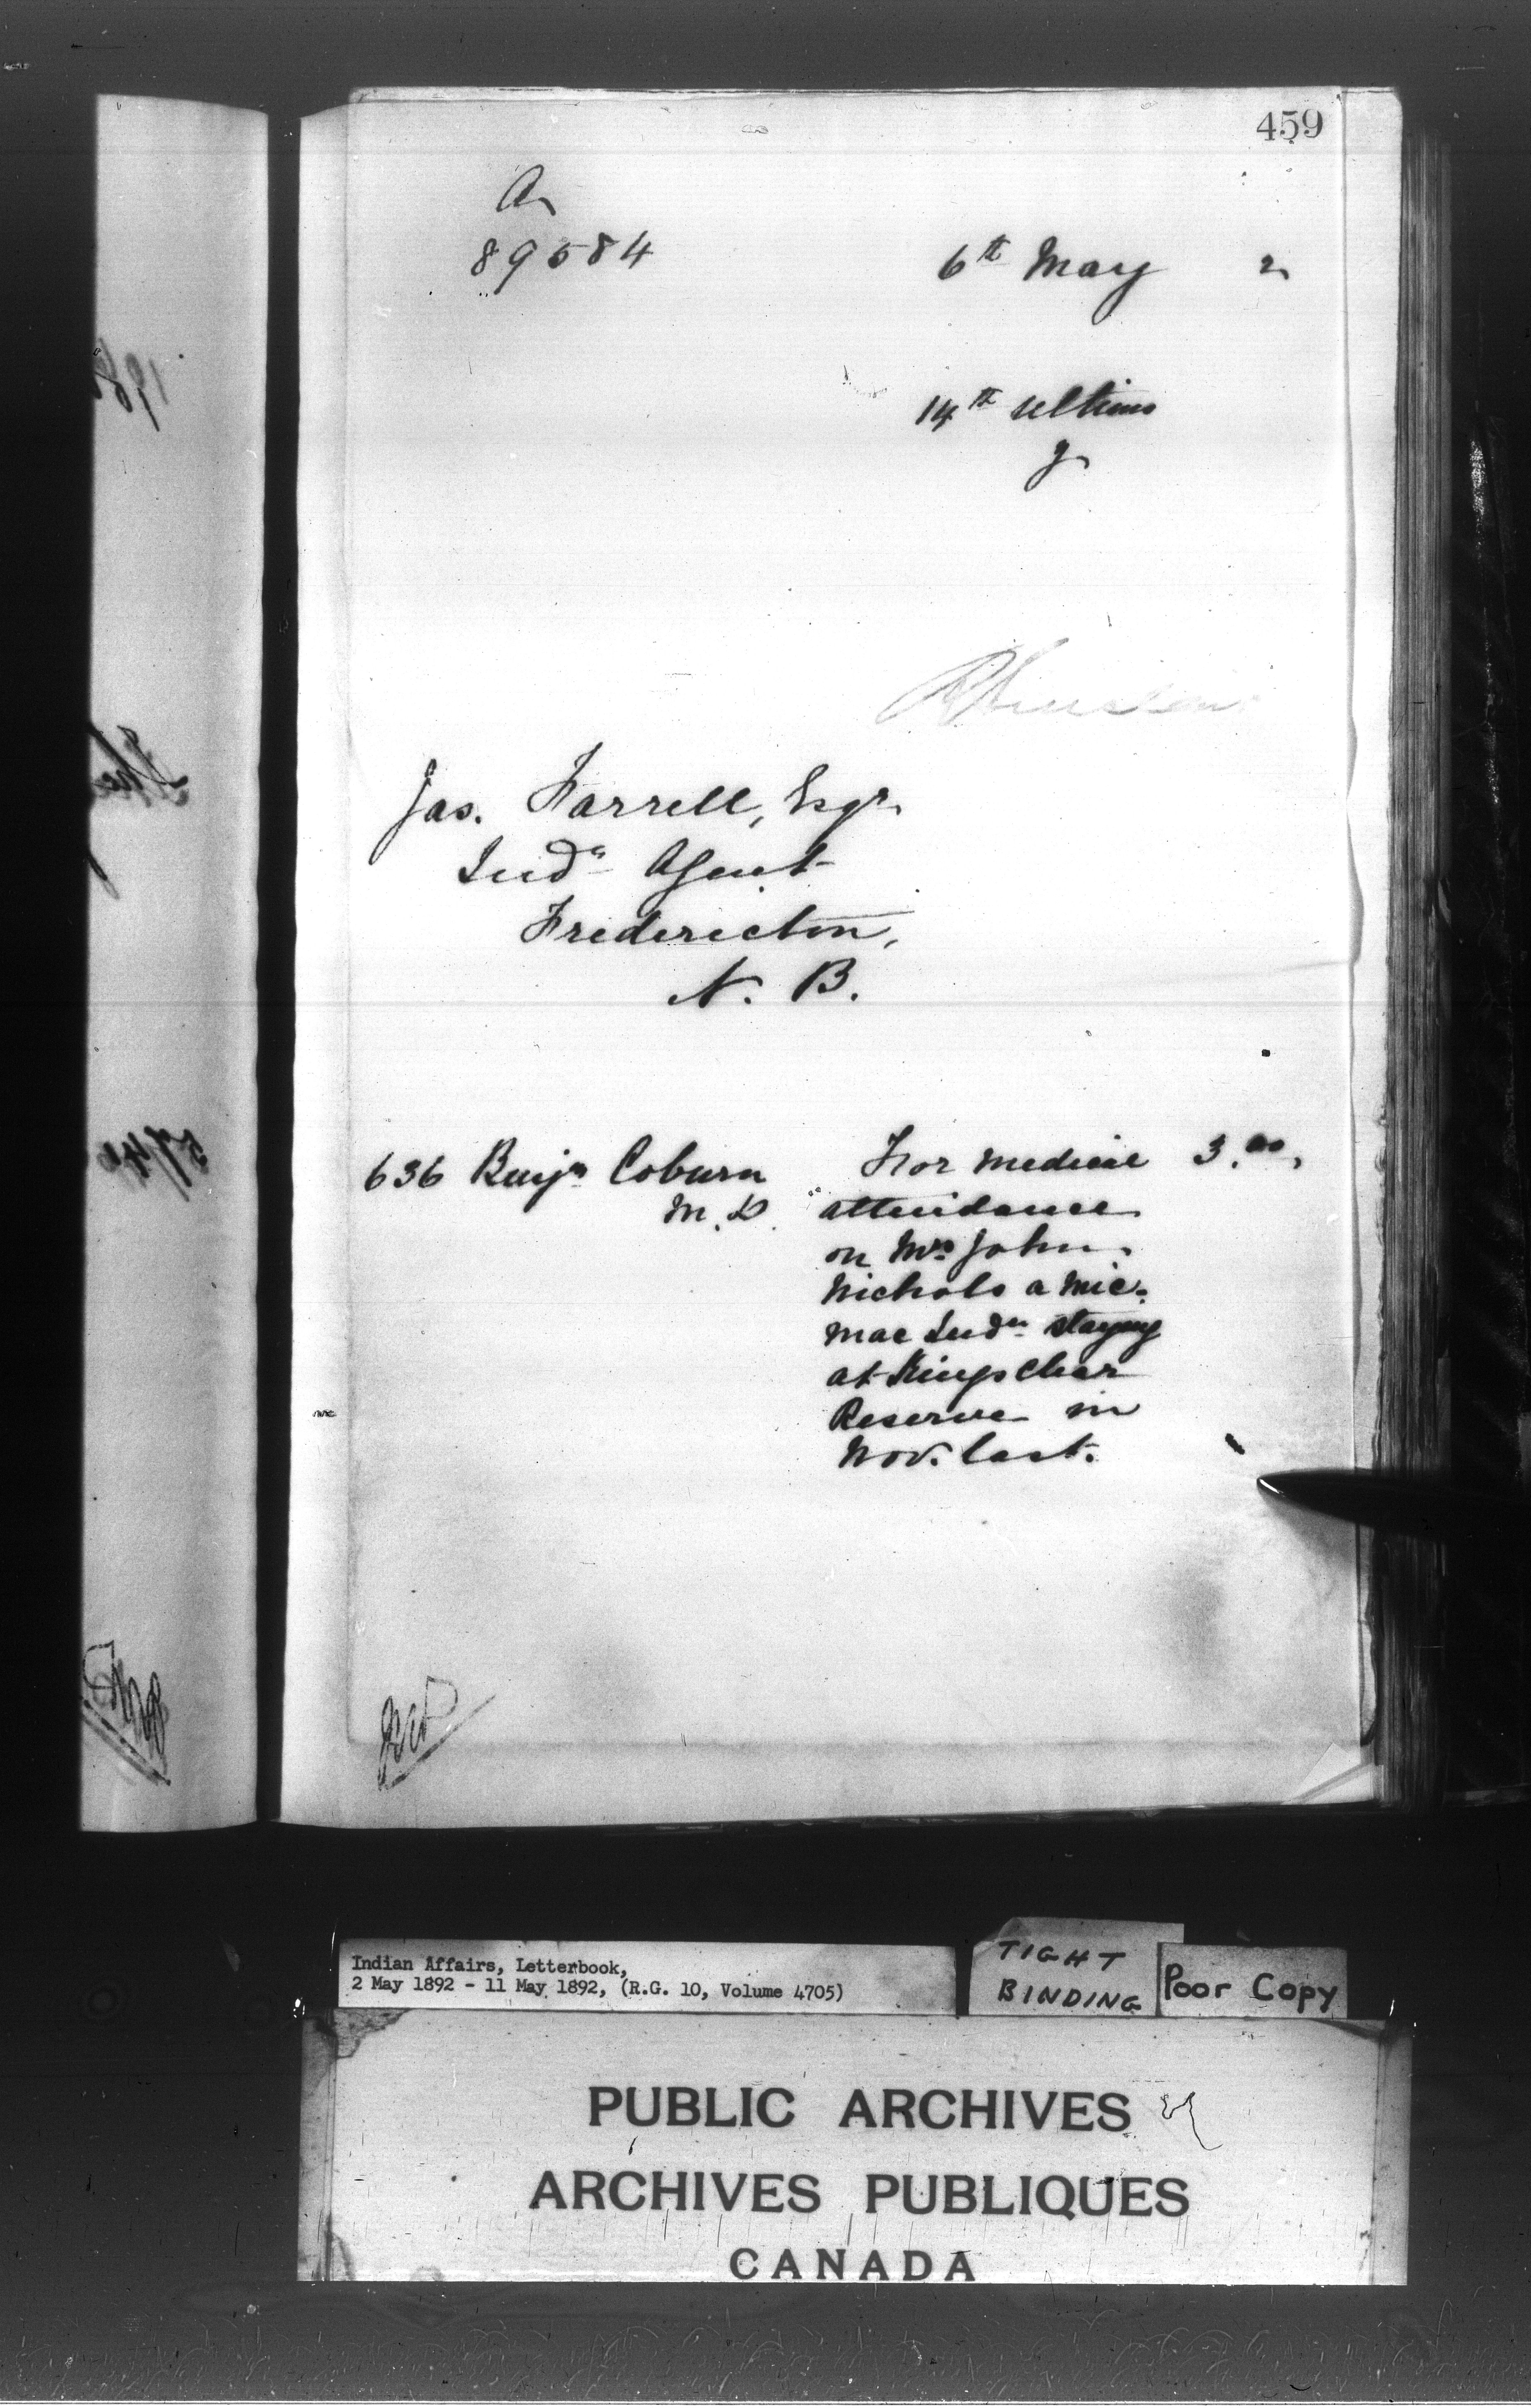 459
A
89584
6th May 2
14th ultimo
J
Jas. Farrell, Esqr.
Indn Agent
Fredericton,
N. B.
636 Benjn Coburn M.D. For medical 3.00,
attendance
on Mrs John
Nichols a Mic-
mac Indn staying
at Kingsclear
Reserve in
Nov. last.
Indian Affairs, Letterbook,
2 May 1892 - 11 May 1892, (R.G. 10, Volume 4705)
TIGHT
BINDING
Poor Copy
PUBLIC ARCHIVES
ARCHIVES PUBLIQUES
CANADA